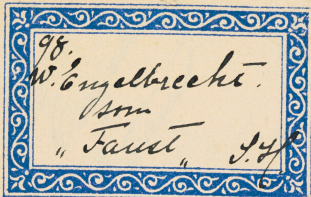 98.
W. Engelbrecht.
som
„Faust„ S. H